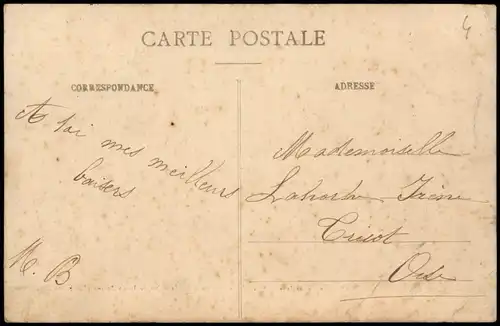 4
CARTE POSTALE
CORRESPONDANCE
A toi mes meilleurs
baisers
M. B
ADRESSE
Mademoiselle
Irène
Tricot
Oise